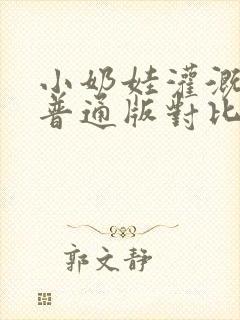 小奶娃灌溉
普通版對比
郭文静